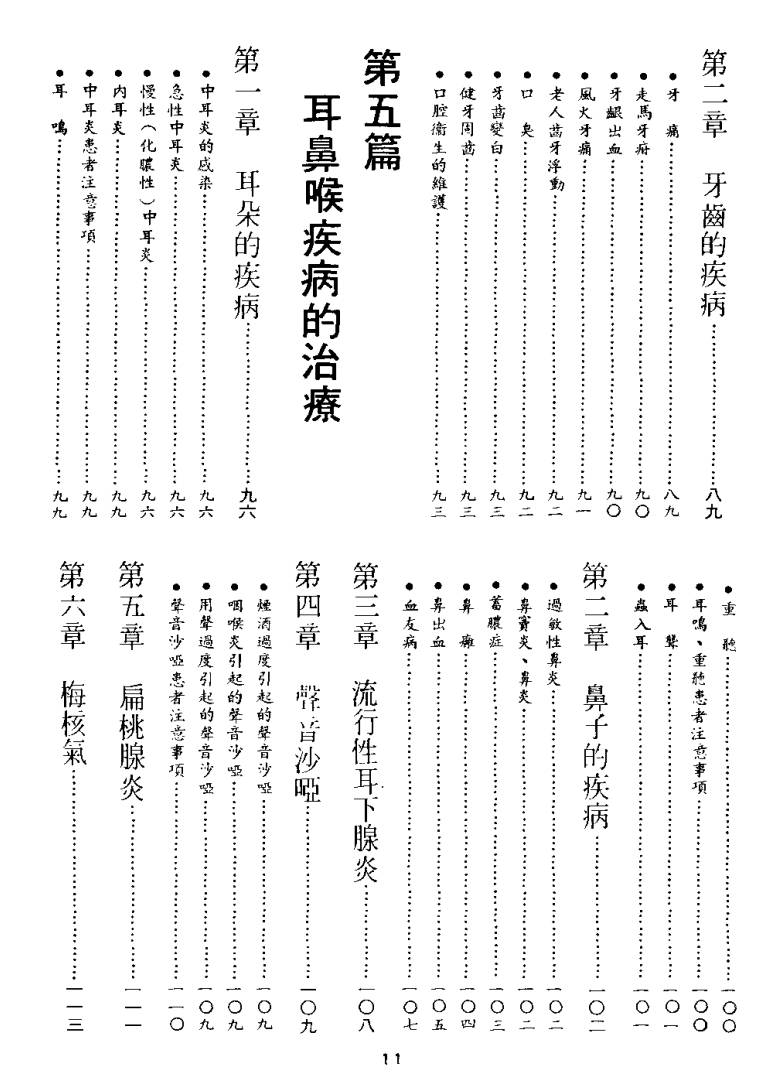 第二章 牙齒的疾病……八九
•牙 痛……八九
•走馬牙疳……九〇
•牙齦出血……九〇
•風火牙痛……九一
•老人齒牙浮動……九二
•口 臭……九二
•牙齒變白……九三
•健牙固齒……九三
•口腔衞生的維護……九三
第五篇
耳鼻喉疾病的治療
第一章 耳朵的疾病……九六
•中耳炎的感染……九六
•急性中耳炎……九六
•慢性(化膿性)中耳炎……九六
•內耳炎……九九
•中耳炎患者注意事項……九九
•耳 鳴……九九
•重 聽……一〇〇
•耳鳴、重聽患者注意事項……一〇〇
•耳 聾……一〇一
•蟲入耳……一〇一
第二章 鼻子的疾病……一〇二
•過敏性鼻炎……一〇二
•鼻竇炎、鼻炎……一〇二
•蓄膿症……一〇三
•鼻 癰……一〇四
•鼻出血……一〇五
•血友病……一〇七
第三章 流行性耳下腺炎……一〇八
第四章 聲音沙啞……一〇九
•煙酒過度引起的聲音沙啞……一〇九
•咽喉炎引起的聲音沙啞……一〇九
•用聲過度引起的聲音沙啞……一〇九
•聲音沙啞患者注意事項……一一〇
第五章 扁桃腺炎……一一一
第六章 梅核氣……一一三
11